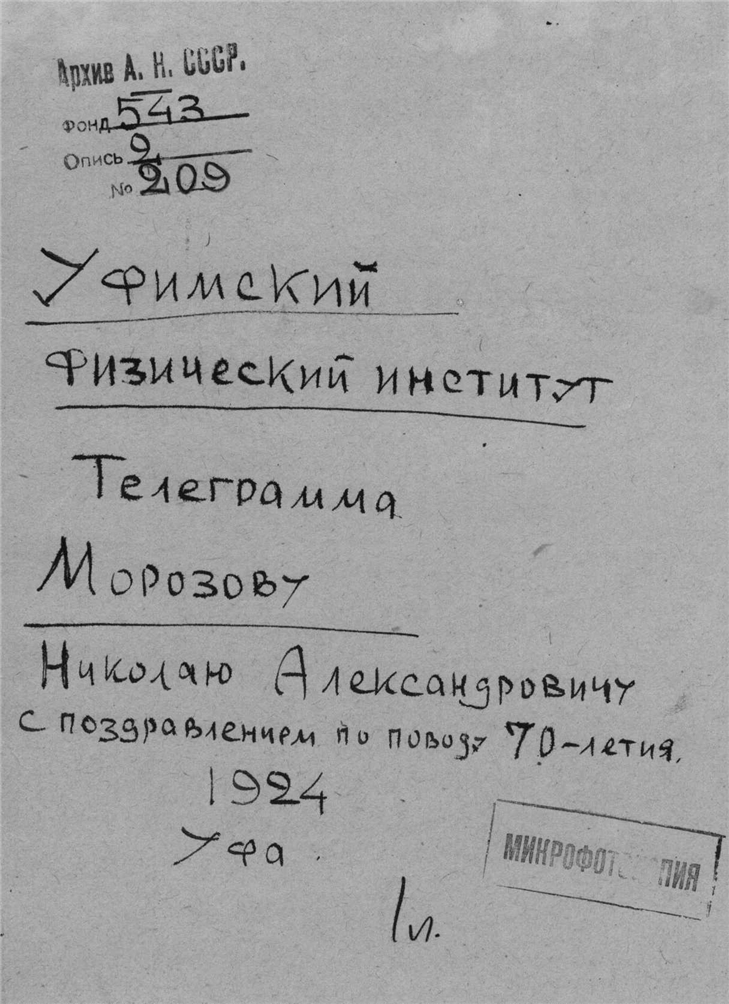 Архив А. Н. СССР.
Фонд 543
Опись 2
№ 209
Уфимский
Физический институт
Телеграмма
Морозову
Николаю Александровичу
с поздравлением по поводу 70-летия.
1924
Уфа.
1 л.
МИКРОФОТОКОПИЯ